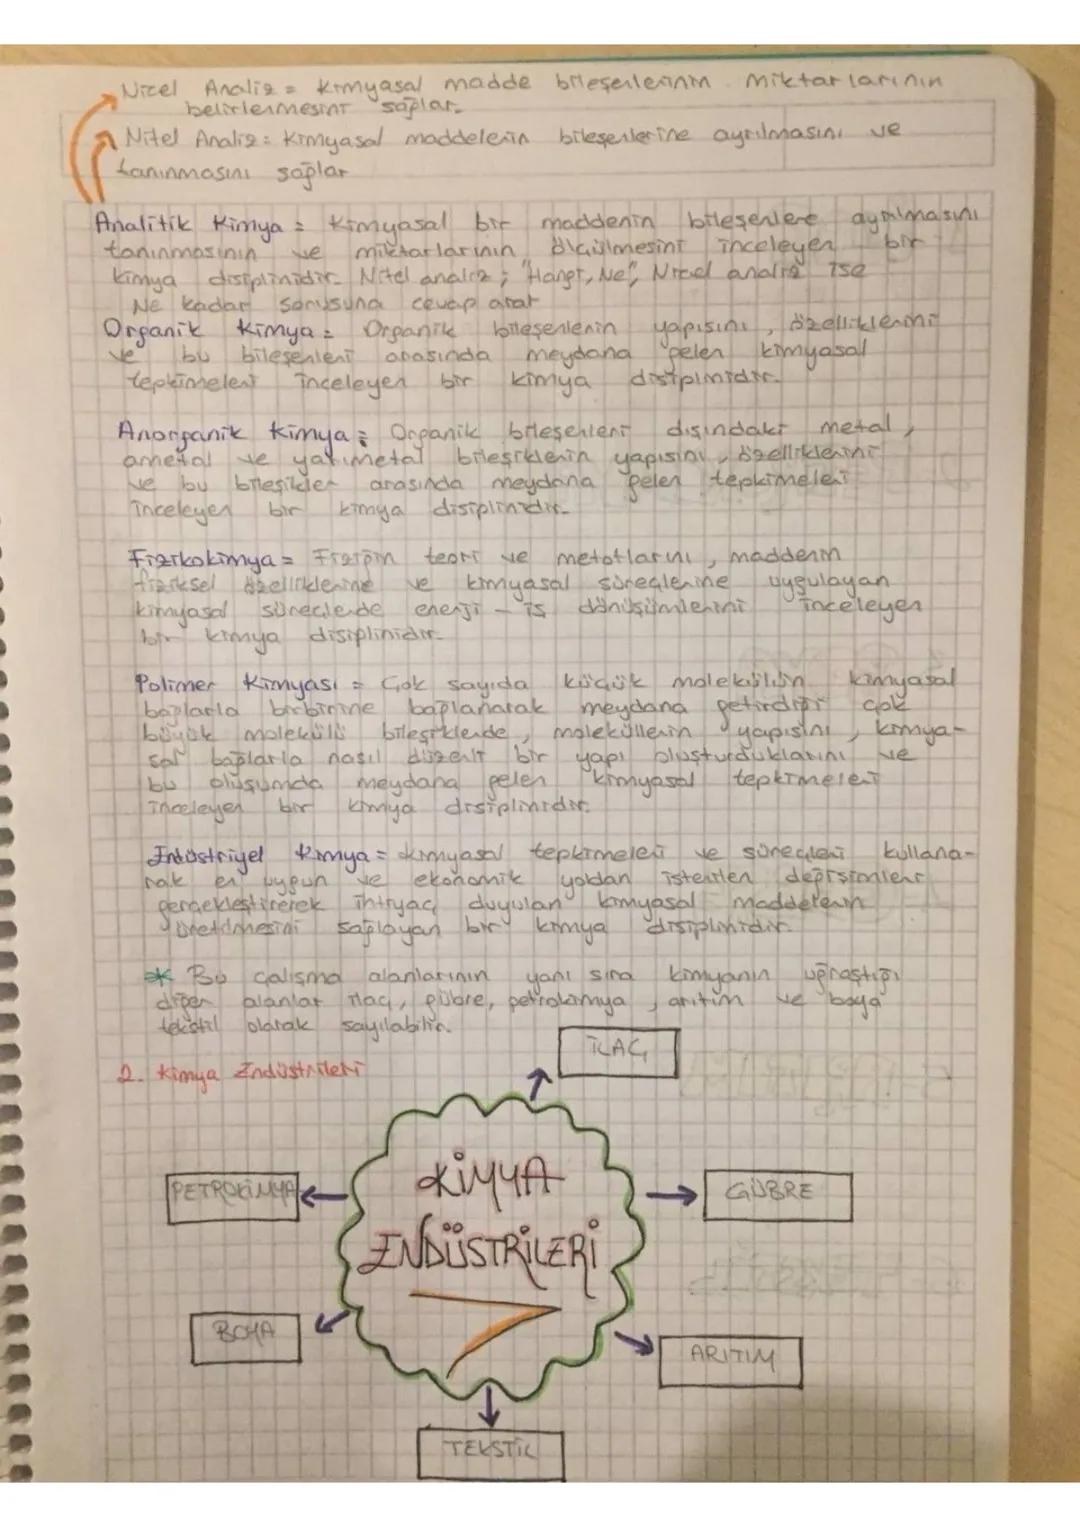 Nicel Analiz = Kimyasal madde bileşenlerinin miktarlarının
belirlenmesini sağlar.
Nitel Analiz: Kimyasal maddelerin bileşenlerine ayrılmasını ve
tanınmasını sağlar
Analitik Kimya = Kimyasal bir maddenin bileşenlere ayrılmasını
tanınmasının ve miktarlarının ölçülmesini inceleyen bir
kimya disiplinidir. Nitel analiz; "Hangi, Ne", Nicel analiz ise
Ne kadar sorusuna cevap arar
Organik Kimya = Organik bileşenlerin yapısını, özelliklerini
ve bu bileşenleri arasında meydana gelen kimyasal
tepkimeleri inceleyen bir kimya disiplinidir.
Anorganik Kimya = Organik bileşenleri dışındaki metal,
ametal ve yarımetal bileşiklerin yapısını, özelliklerini
ve bu bileşikler arasında meydana gelen tepkimeleri
inceleyen bir kimya disiplinidir.
Fizikokimya = Fiziğin teori ve metotlarını, maddenin
fiziksel özelliklerine ve kimyasal süreçlerine uygulayan
kimyasal süreçlerde enerji - iş dönüşümlerini inceleyen
bir kimya disiplinidir.
Polimer Kimyası = Çok sayıda küçük molekülün kimyasal
bağlarla birbirine bağlanarak meydana getirdiği çok
büyük molekülü bileşiklerde, moleküllerin yapısını, kimya-
sal bağlarla nasıl düzenli bir yapı oluşturduklarını ve
bu oluşumda meydana gelen kimyasal tepkimeleri
inceleyen bir kimya disiplinidir.
Endüstriyel Kimya = Kimyasal tepkimeleri ve süreçleri kullana-
rak en uygun ve ekonomik yoldan istenilen değişimleri
gerçekleştirerek ihtiyaç duyulan kimyasal maddelerin
üretilmesini sağlayan bir kimya disiplinidir.
* Bu çalışma alanlarının yanı sıra kimyanın uğraştığı
diğer alanlar ilaç, gübre, petrokimya, arıtım ve boya
tekstil olarak sayılabilir.
2. Kimya Endüstrileri
İLAÇ
PETROKİMYA
KİMYA
ENDÜSTRİLERİ
GÜBRE
BOYA
ARITIM
TEKSTİL